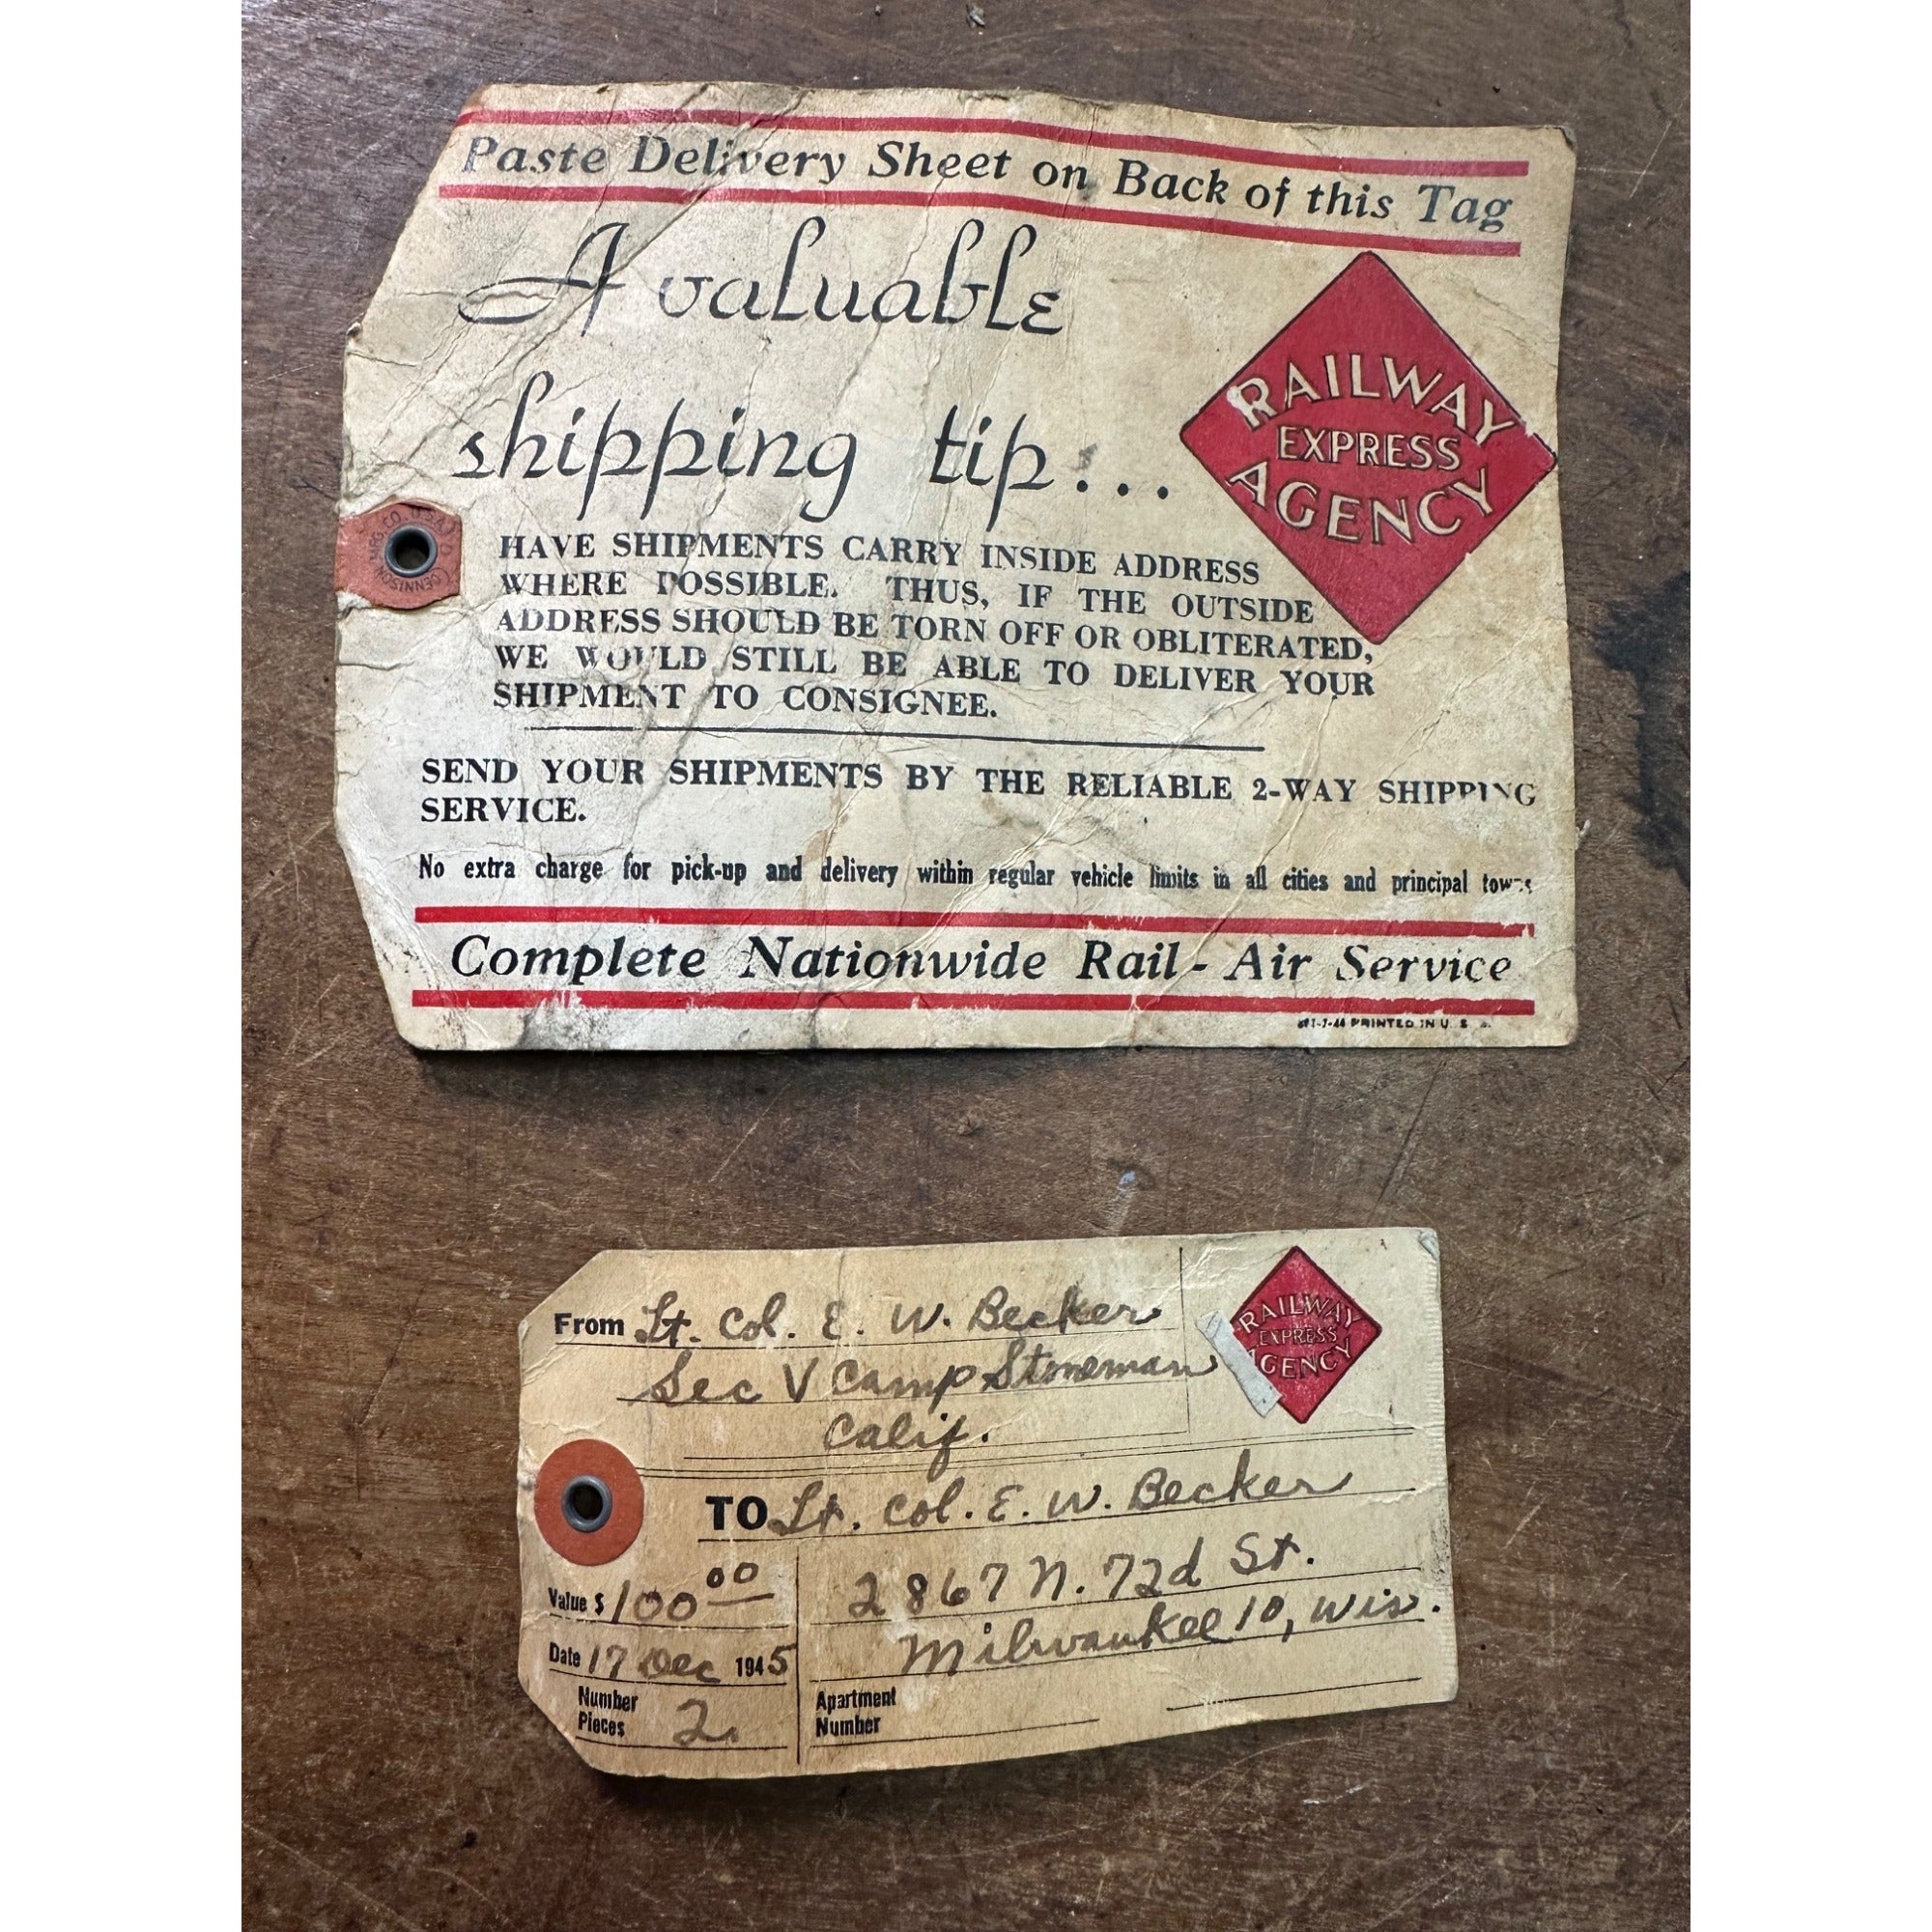 Paste Delivery Sheet on Back of this Tag
A valuable
shipping tip...
RAILWAY
EXPRESS
AGENCY
DENNISON MFG. CO. U.S.A.
HAVE SHIPMENTS CARRY INSIDE ADDRESS
WHERE POSSIBLE. THUS, IF THE OUTSIDE
ADDRESS SHOULD BE TORN OFF OR OBLITERATED,
WE WOULD STILL BE ABLE TO DELIVER YOUR
SHIPMENT TO CONSIGNEE.
SEND YOUR SHIPMENTS BY THE RELIABLE 2-WAY SHIPPING
SERVICE.
No extra charge for pick-up and delivery within regular vehicle limits in all cities and principal towns
Complete Nationwide Rail-Air Service
PRINTED IN U. S. A.
From Lt. Col. E. W. Becker
Sec V Camp Stoneman
Calif.
RAILWAY
EXPRESS
AGENCY
TO Lt. Col. E. W. Becker
2867 N. 72d St.
Milwaukee 10, Wis.
Value $ 100 00
Date 17 Dec 1945
Number
Pieces 2.
Apartment
Number